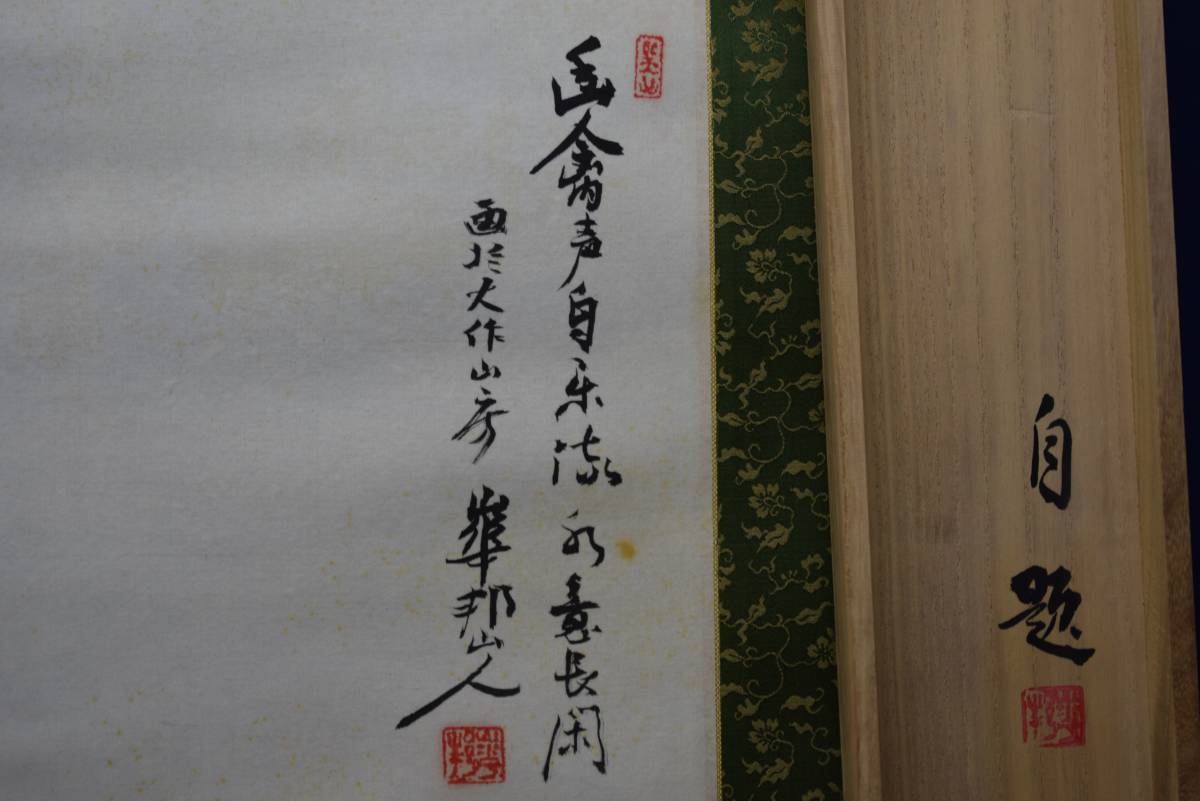 幽禽声自楽流水意長閑
画於大作山房 華邦山人
自題